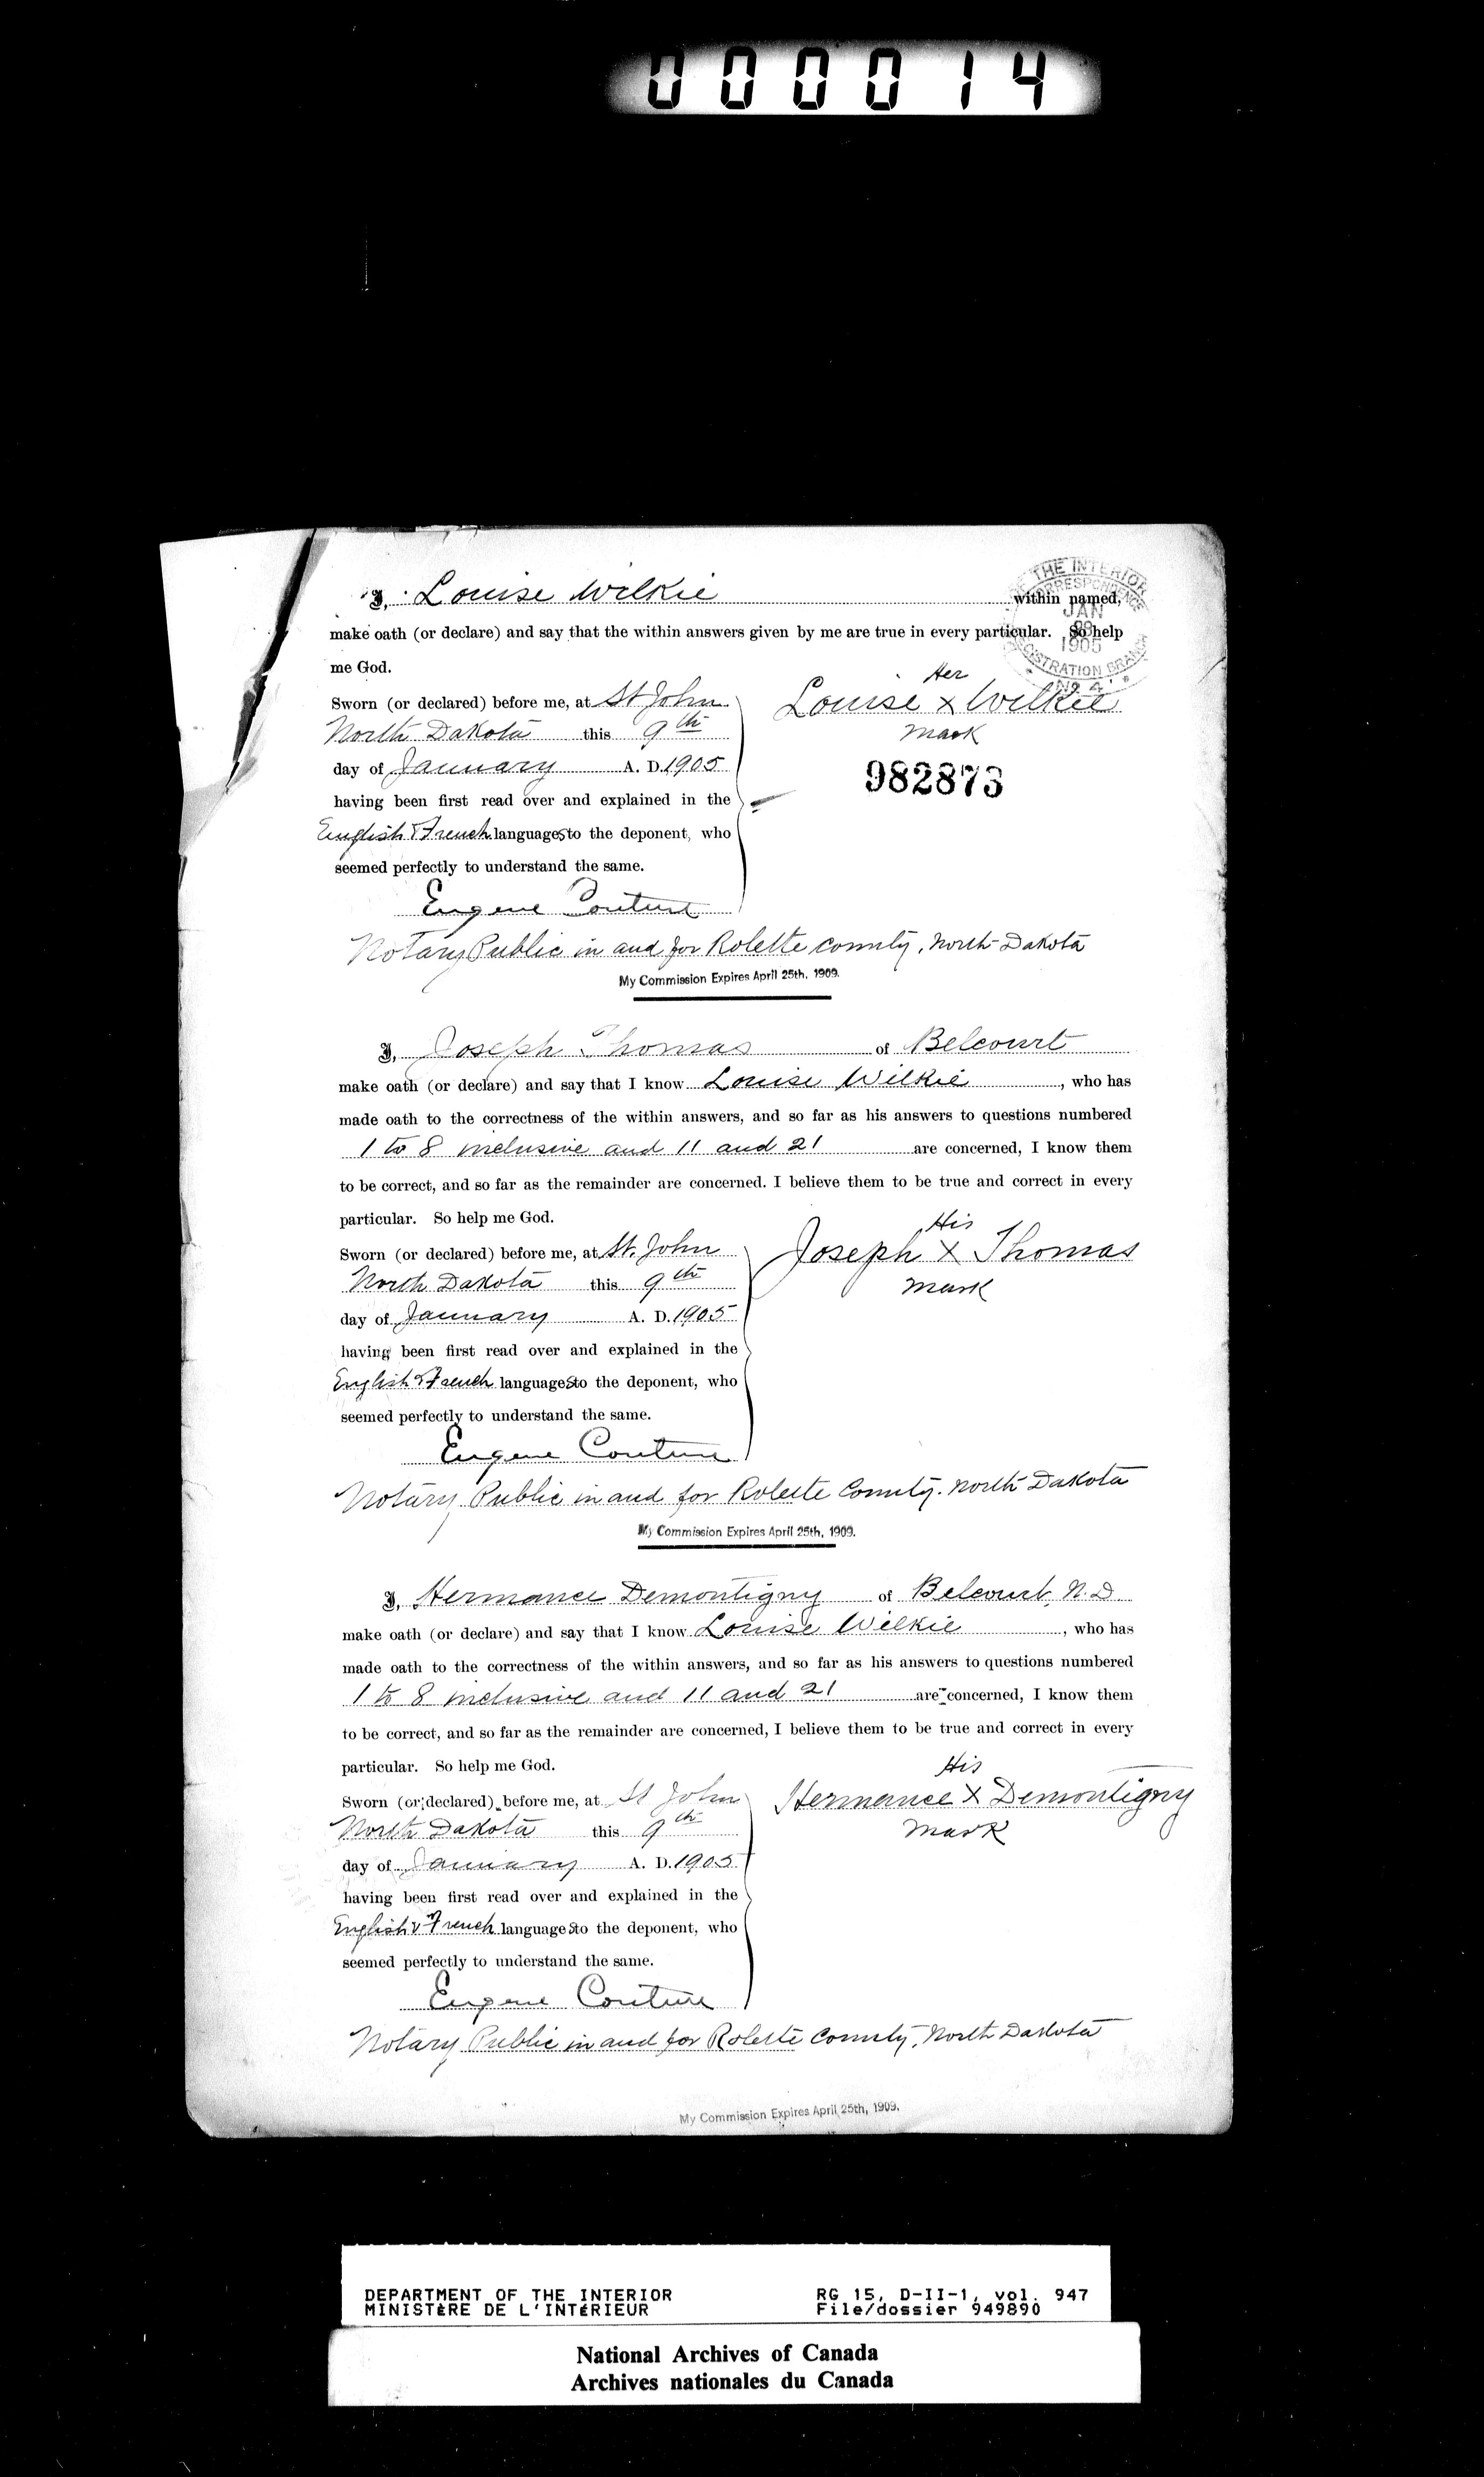 000014
THE INTERIOR
CORRESPONDENCE
JAN
1905
REGISTRATION BRANCH
No 4
I, Louise Wilkie within named,
make oath (or declare) and say that the within answers given by me are true in every particular. So help
me God.
Sworn (or declared) before me, at St John
North Dakota this 9th
day of January A. D. 1905
having been first read over and explained in the
English & French languages to the deponent, who
seemed perfectly to understand the same.
Her
Louise x Wilkie
mark
982873
Eugene Couture
Notary Public in and for Rolette county, North Dakota
My Commission Expires April 25th, 1909.
I, Joseph Thomas of Belcourt
make oath (or declare) and say that I know Louise Wilkie, who has
made oath to the correctness of the within answers, and so far as his answers to questions numbered
1 to 8 inclusive and 11 and 21 are concerned, I know them
to be correct, and so far as the remainder are concerned. I believe them to be true and correct in every
particular. So help me God.
Sworn (or declared) before me, at St. John
North Dakota this 9th
day of January A. D. 1905
having been first read over and explained in the
English & French languages to the deponent, who
seemed perfectly to understand the same.
His
Joseph X Thomas
mark
Eugene Couture
Notary Public in and for Rolette County. North Dakota
My Commission Expires April 25th, 1909.
I, Hermance Demontigny of Belcourt, N.D
make oath (or declare) and say that I know Louise Wilkie, who has
made oath to the correctness of the within answers, and so far as his answers to questions numbered
1 to 8 inclusive and 11 and 21 are concerned, I know them
to be correct, and so far as the remainder are concerned, I believe them to be true and correct in every
particular. So help me God.
Sworn (or declared) before me, at St John
North Dakota this 9th
day of January A. D. 1905
having been first read over and explained in the
English & French languages to the deponent, who
seemed perfectly to understand the same.
His
Hermance X Demontigny
mark
Eugene Couture
Notary Public in and for Rolette County, North Dakota
My Commission Expires April 25th, 1909.
DEPARTMENT OF THE INTERIOR RG 15, D-II-1, vol. 947
MINISTÈRE DE L'INTÉRIEUR File/dossier 949890
National Archives of Canada
Archives nationales du Canada